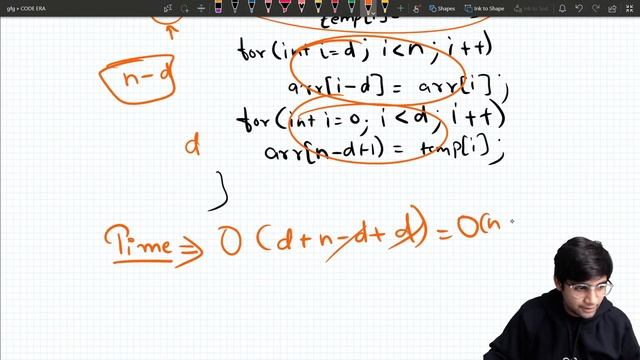 gfg » CODE ERA
Shapes
Ink to Shape
Ink to Math
temp[i]=
for(int i=d; i<n; i++)
n-d
arr[i-d] = arr[i];
for(int i=0; i<d; i++)
d
arr[n-d+i) = temp[i];
}
Time ⇒ O (d+n-d+d) = O(n